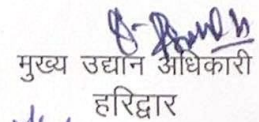 मुख्य उद्यान अधिकारी
हरिद्वार